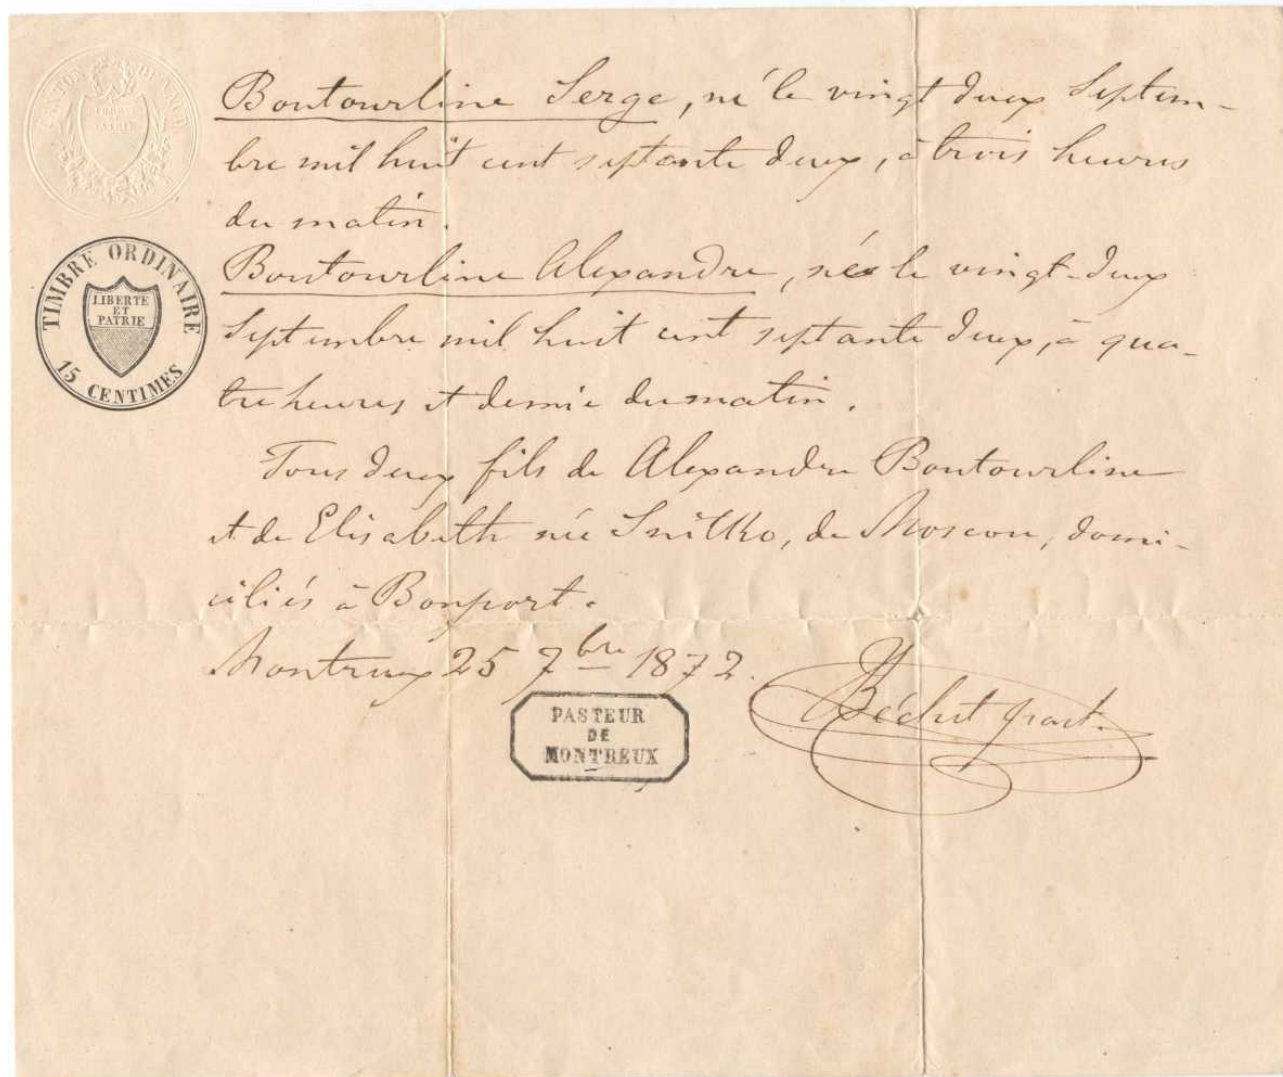 CANTON DE VAUD
LIBERTÉ
ET
PATRIE
TIMBRE ORDINAIRE
LIBERTE
ET
PATRIE
15 CENTIMES
Boutourline Serge, né le vingt deux Septem-
bre mil huit cent septante deux, à trois heures
du matin.
Boutourline Alexandre, né le vingt-deux
Septembre mil huit cent septante deux, à qua-
tre heures et demie du matin.
Tous deux fils de Alexandre Boutourline
et de Elisabeth née Snitko, de Moscou, domi-
ciliés à Bonport.
Montreux 25 7bre 1872.
Béchet past.
PASTEUR
DE
MONTREUX